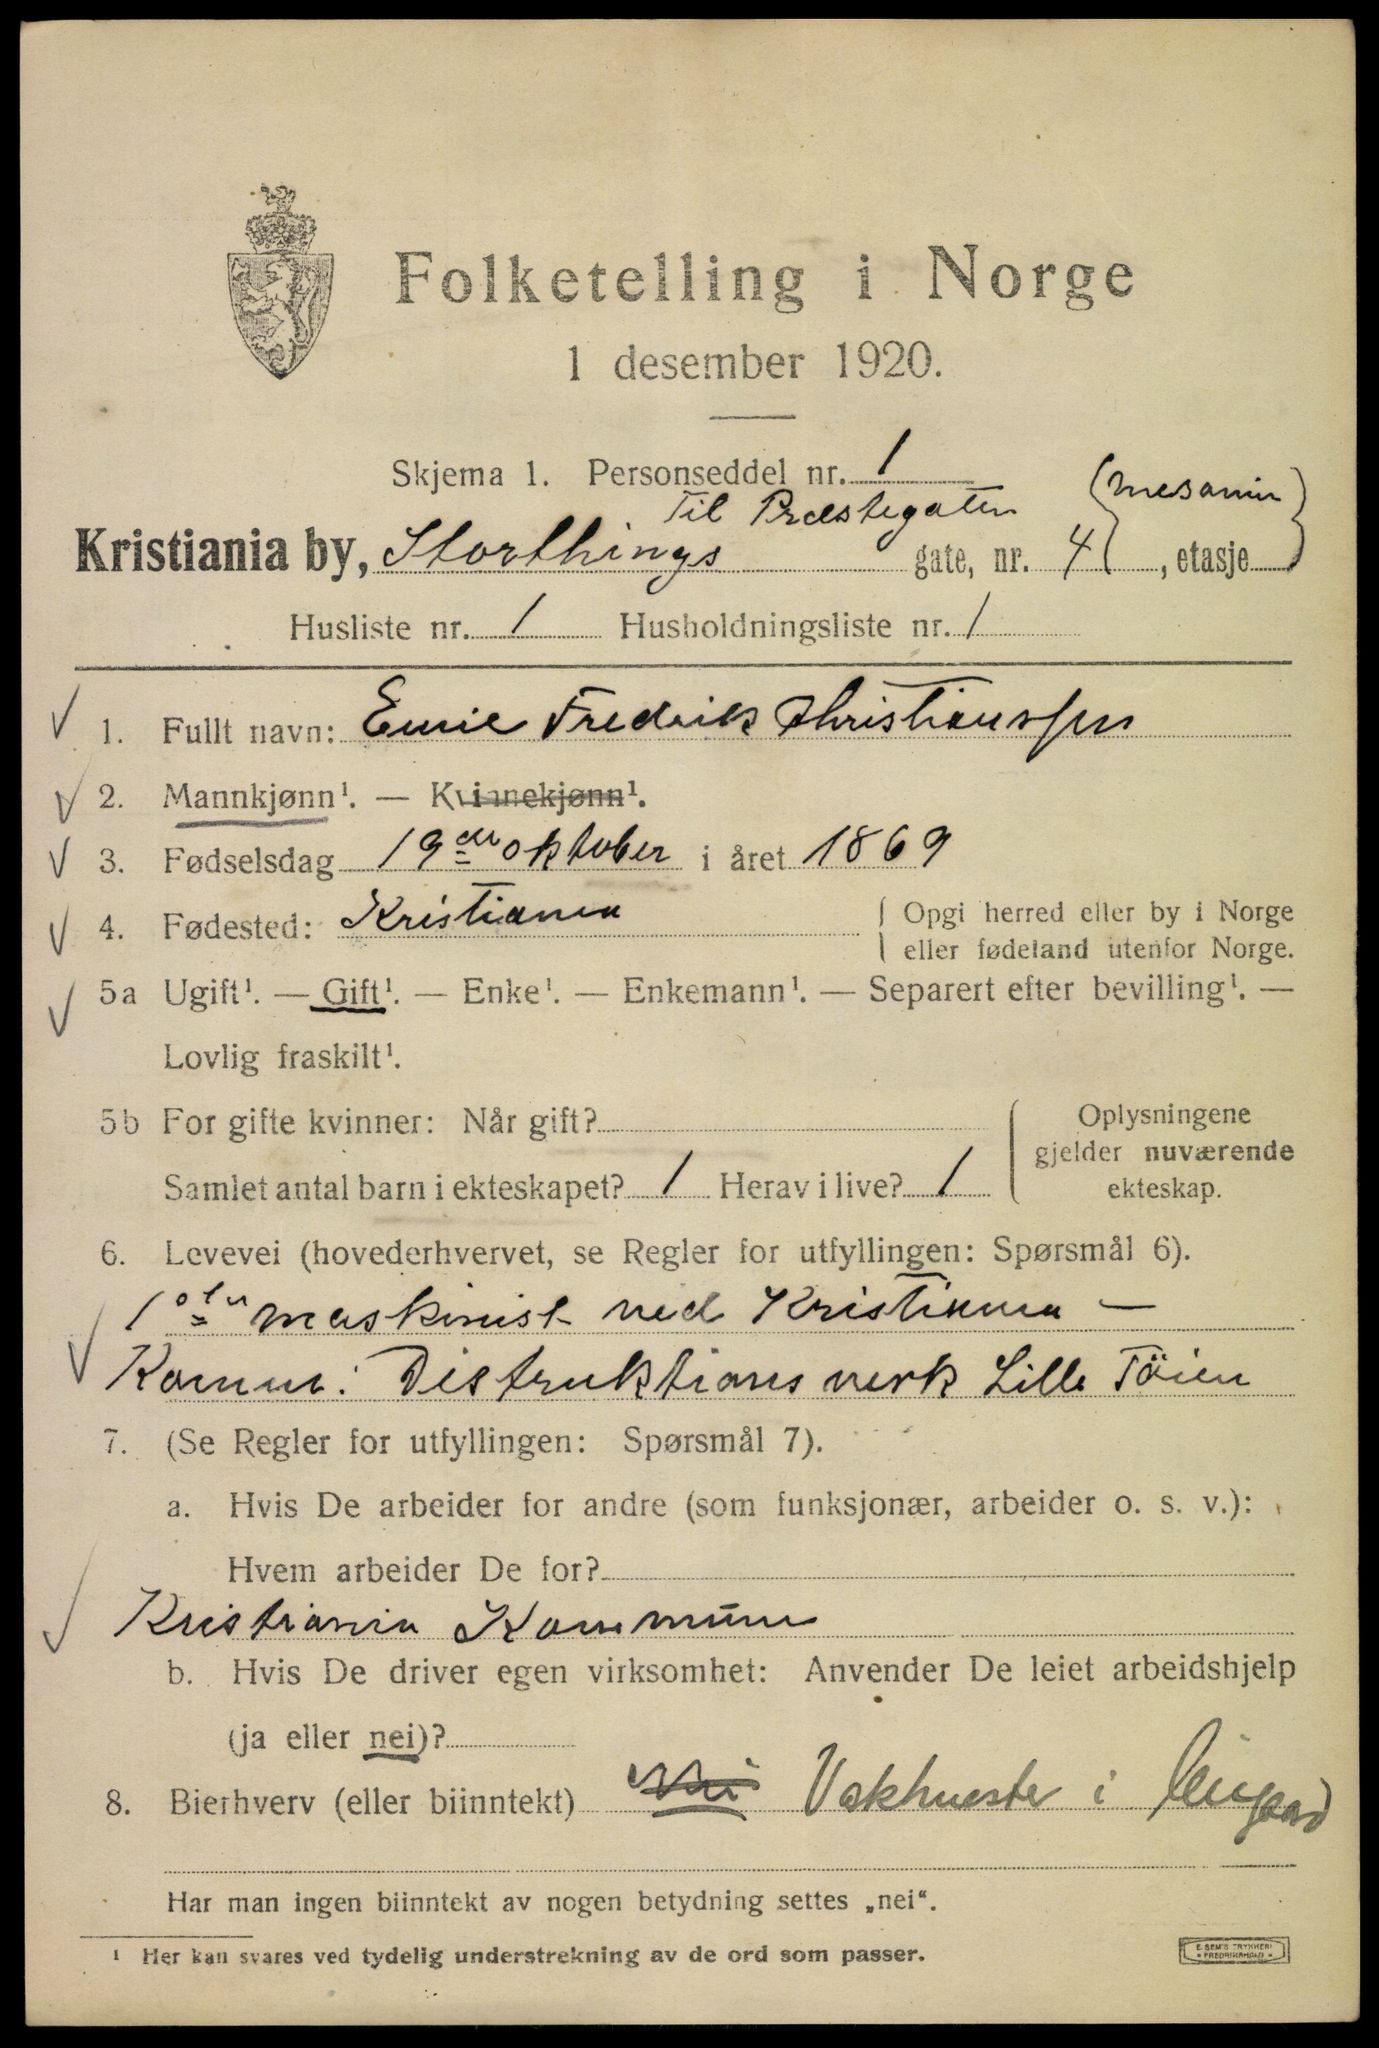 Folketelling i Norge
1 desember 1920.
Skjema 1. Personseddel nr. 1
Til Præstegaten (mesanin)
Kristiania by, Storthings gate, nr. 4 , etasje
Husliste nr. 1 Husholdningsliste nr. 1
1. Fullt navn: Emil Fredrik Christianssen
2. Mannkjønn¹. — Kvinnekjønn¹.
3. Fødselsdag 19de oktober i året 1869
4. Fødested: Kristiania { Opgi herred eller by i Norge
eller fødeland utenfor Norge.
5a Ugift¹. — Gift¹. — Enke¹. — Enkemann¹. — Separert efter bevilling¹. —
Lovlig fraskilt¹.
5b For gifte kvinner: Når gift?
Samlet antal barn i ekteskapet? 1 Herav i live? 1
Oplysningene
gjelder nuværende
ekteskap.
6. Levevei (hovederhvervet, se Regler for utfyllingen: Spørsmål 6).
1ste maskinist ved Kristiania —
Komm: Destruktions verk Lille Töien
7. (Se Regler for utfyllingen: Spørsmål 7).
a. Hvis De arbeider for andre (som funksjonær, arbeider o. s. v.):
Hvem arbeider De for?
Kristiania Kommune
b. Hvis De driver egen virksomhet: Anvender De leiet arbeidshjelp
(ja eller nei)?
8. Bierhverv (eller biinntekt) nei Vaktmester i
Har man ingen biinntekt av nogen betydning settes „nei“.
¹ Her kan svares ved tydelig understrekning av de ord som passer.
E. SEM'S TRYKKERI
FREDRIKSHALD